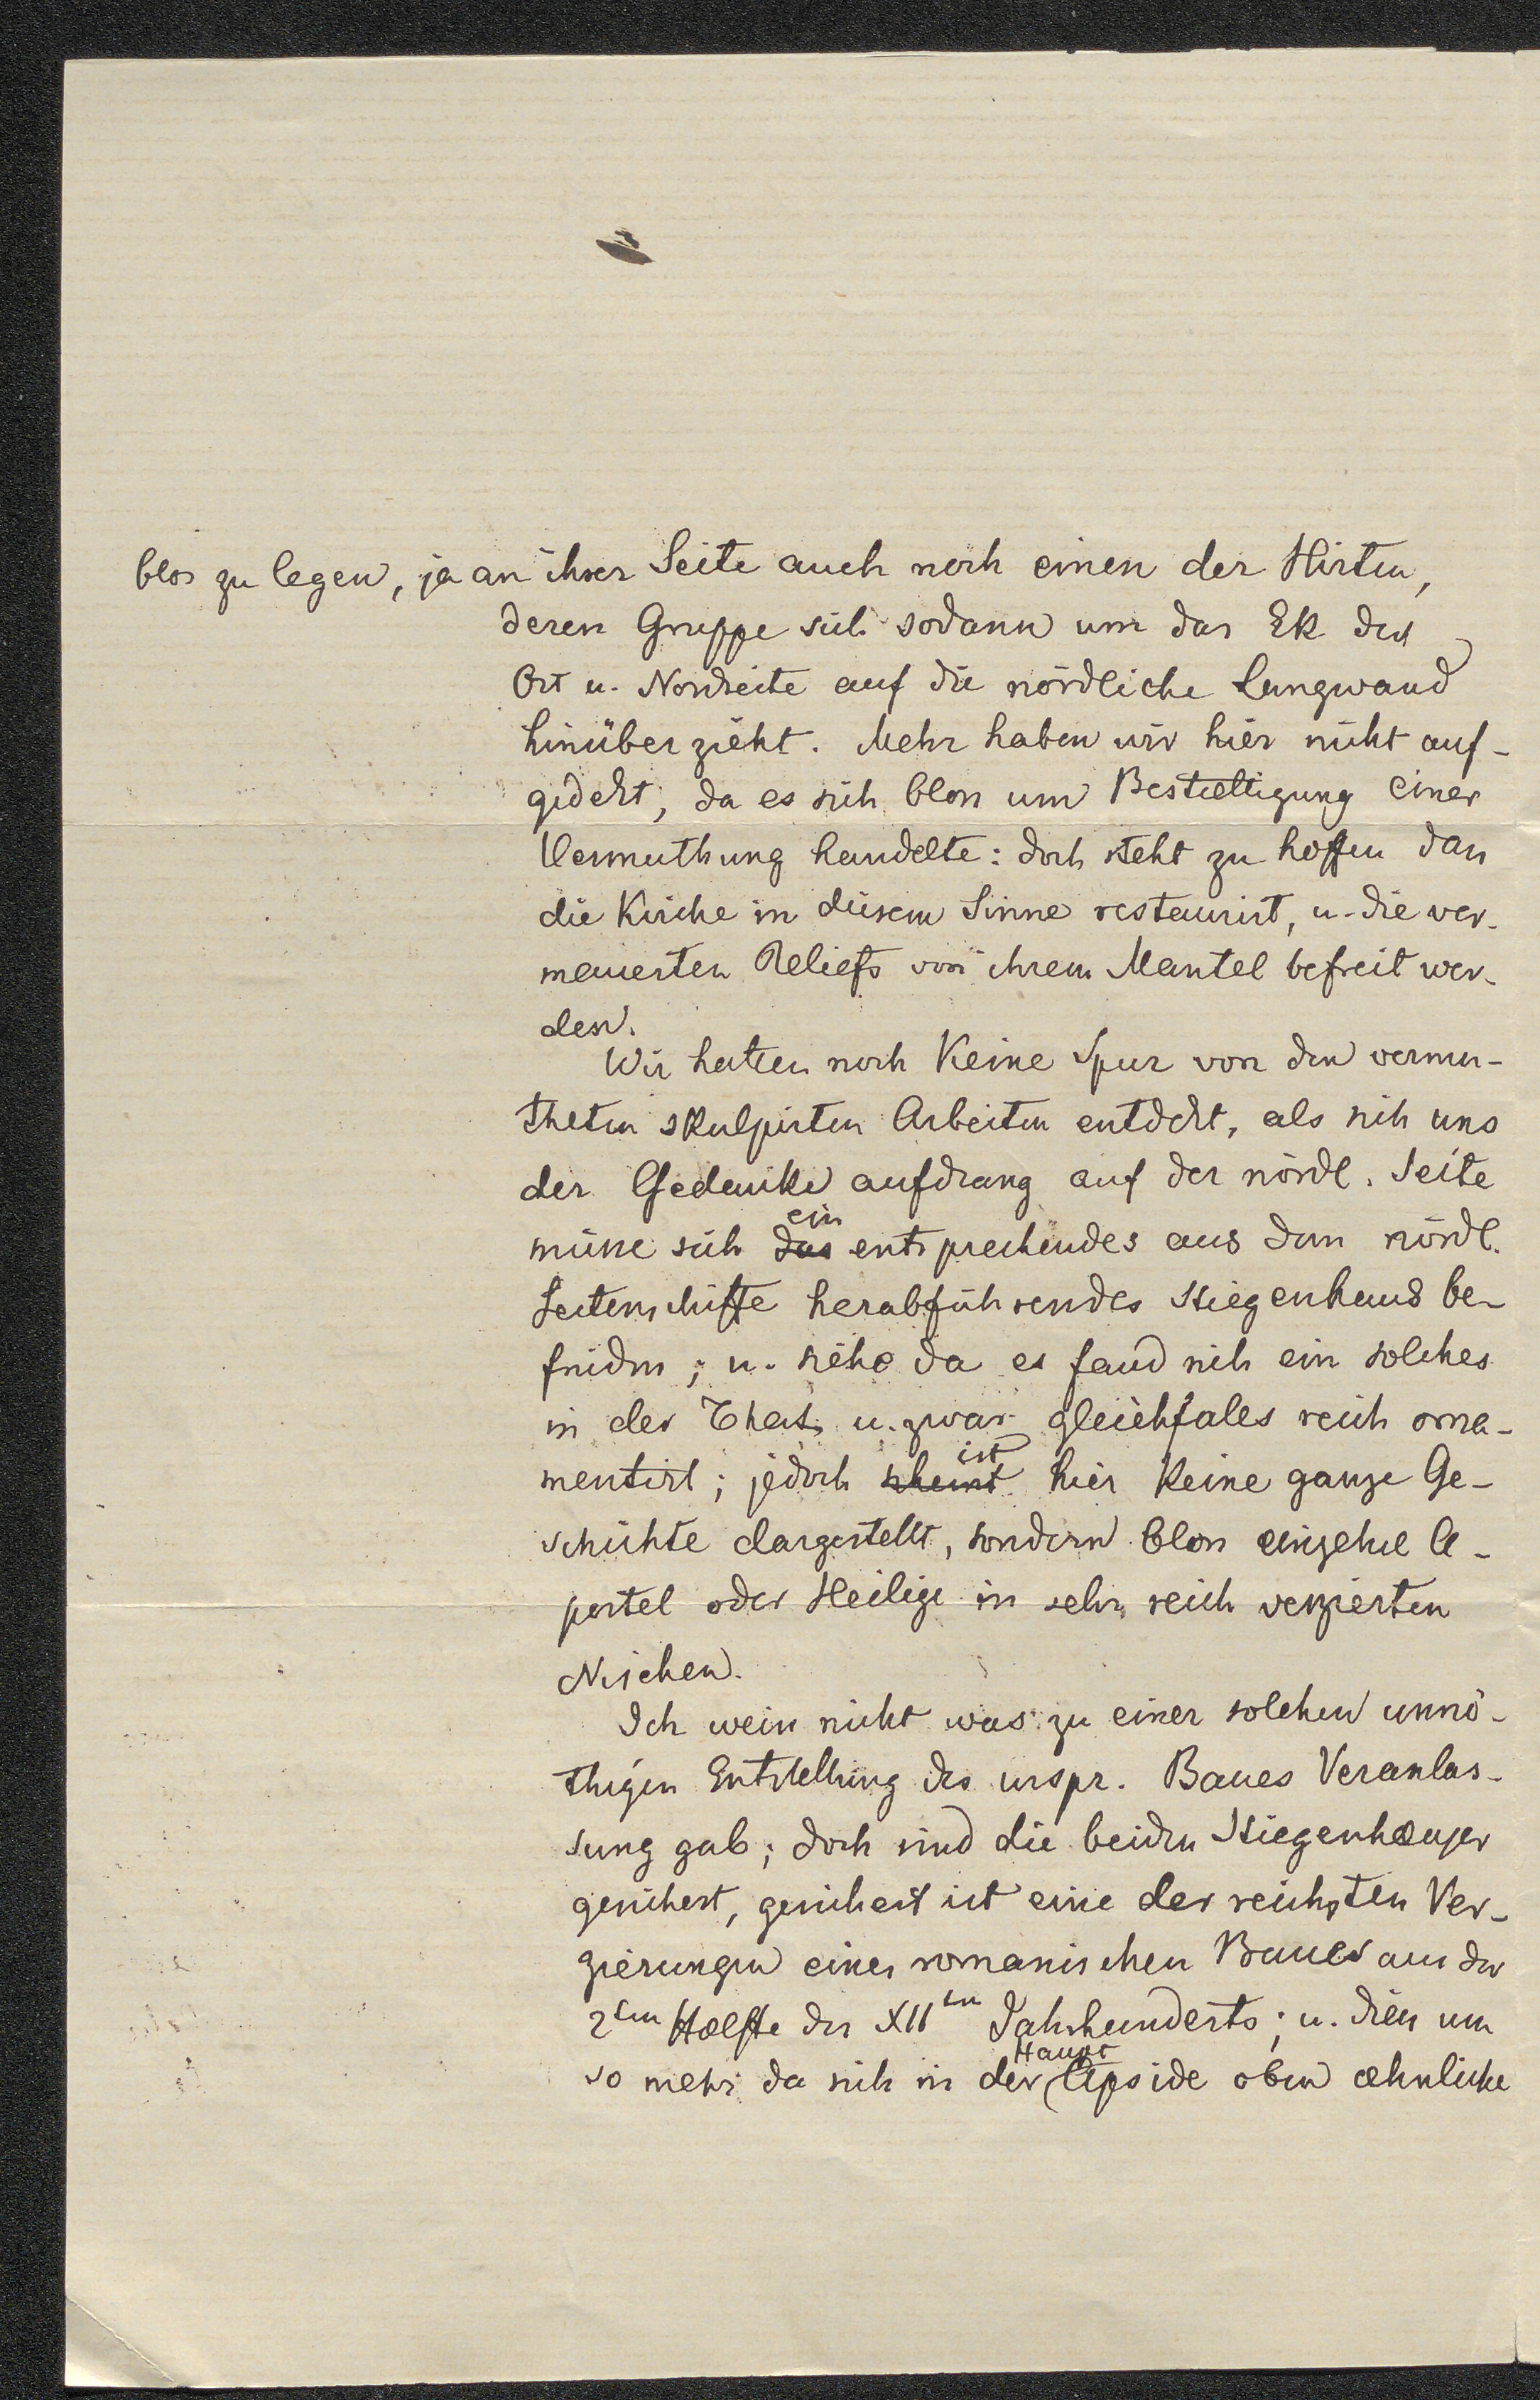 blos zu legen, ja an ihrer Seite auch noch einen der Hirten,
deren Gruppe sich sodann um das Ek der
Ost u. Nordseite auf die nördliche Langwand
hinüber zieht. Mehr haben wir hier nicht auf-
gedekt, da es sich blos um Bestættigung einer
Vermuthung handelte: doch steht zu hoffen dass
die Kirche in diesem Sinne restaurirt, u. die ver-
mauerten Reliefs von ihrem Mantel befreit wer-
den.
Wir hatten noch keine Spur von den vermu-
theten skulpirten Arbeiten entdekt, als sich uns
der Gedanke aufdrang auf der nördl. Seite
müsse sich das ein entsprechendes aus dem nördl.
Seitenschiffe herabführendes Stiegenhaus be-
finden; u. siehe da es fand sich ein solches
in der That u. zwar gleichfales reich orna-
mentirt; jedoch scheint ist hier keine ganze Ge-
schichte dargestellt, sondern blos einzelne A-
postel oder Heilige in sehr reich verzierten
Nischen.
Ich weiss nicht was zu einer solchen unnö-
thigen Entstellung des urspr. Baues Veranlas-
sung gab; doch sind die beiden Stiegenhæuser
gesichert, gesichert ist eine der reichsten Ver-
zierungen eines romanischen Baues aus der
2ten Hælfte des XIIten Jahrhunderts; u. diess um
so mehr da sich in der Haupt Apside oben æhnliche